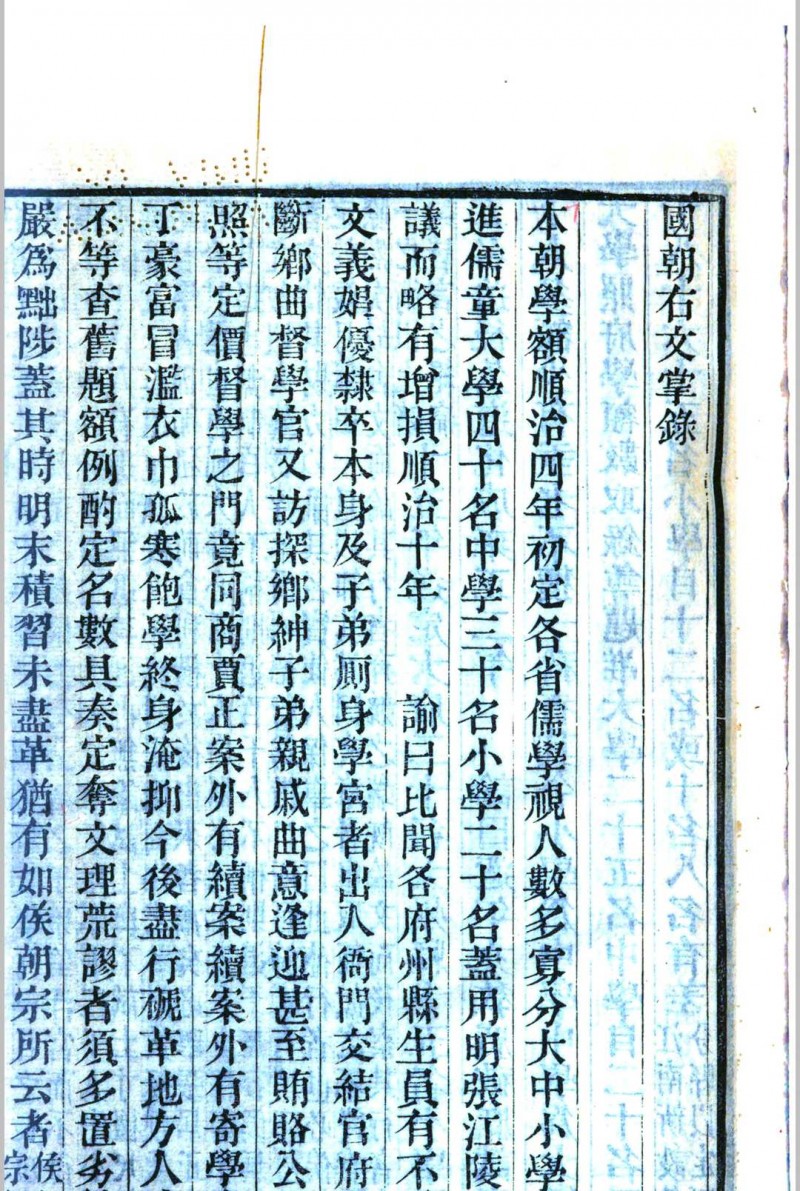 國朝右文掌錄
本朝學額順治四年初定各省儒學視人數多寡分大中小學
進儒童大學四十名中學三十名小學二十名蓋用明張江陵
議而略有增損順治十年　　諭曰比聞各府州縣生員有不
文義娼優隸卒本身及子弟厠身學宮者出入衙門交結官府
斷鄉曲督學官又訪探鄉紳子弟親戚曲意逢迎甚至賄賂公
照等定價督學之門竟同商賈正案外有續案續案外有寄學
丁豪富冒濫衣巾孤寒飽學終身淹抑今後盡行褫革地方人
不等查舊題額例酌定名數具奏定奪文理荒謬者須多置劣
嚴爲黜陟蓋其時明末積習未盡革猶有如侯朝宗所云者侯宗